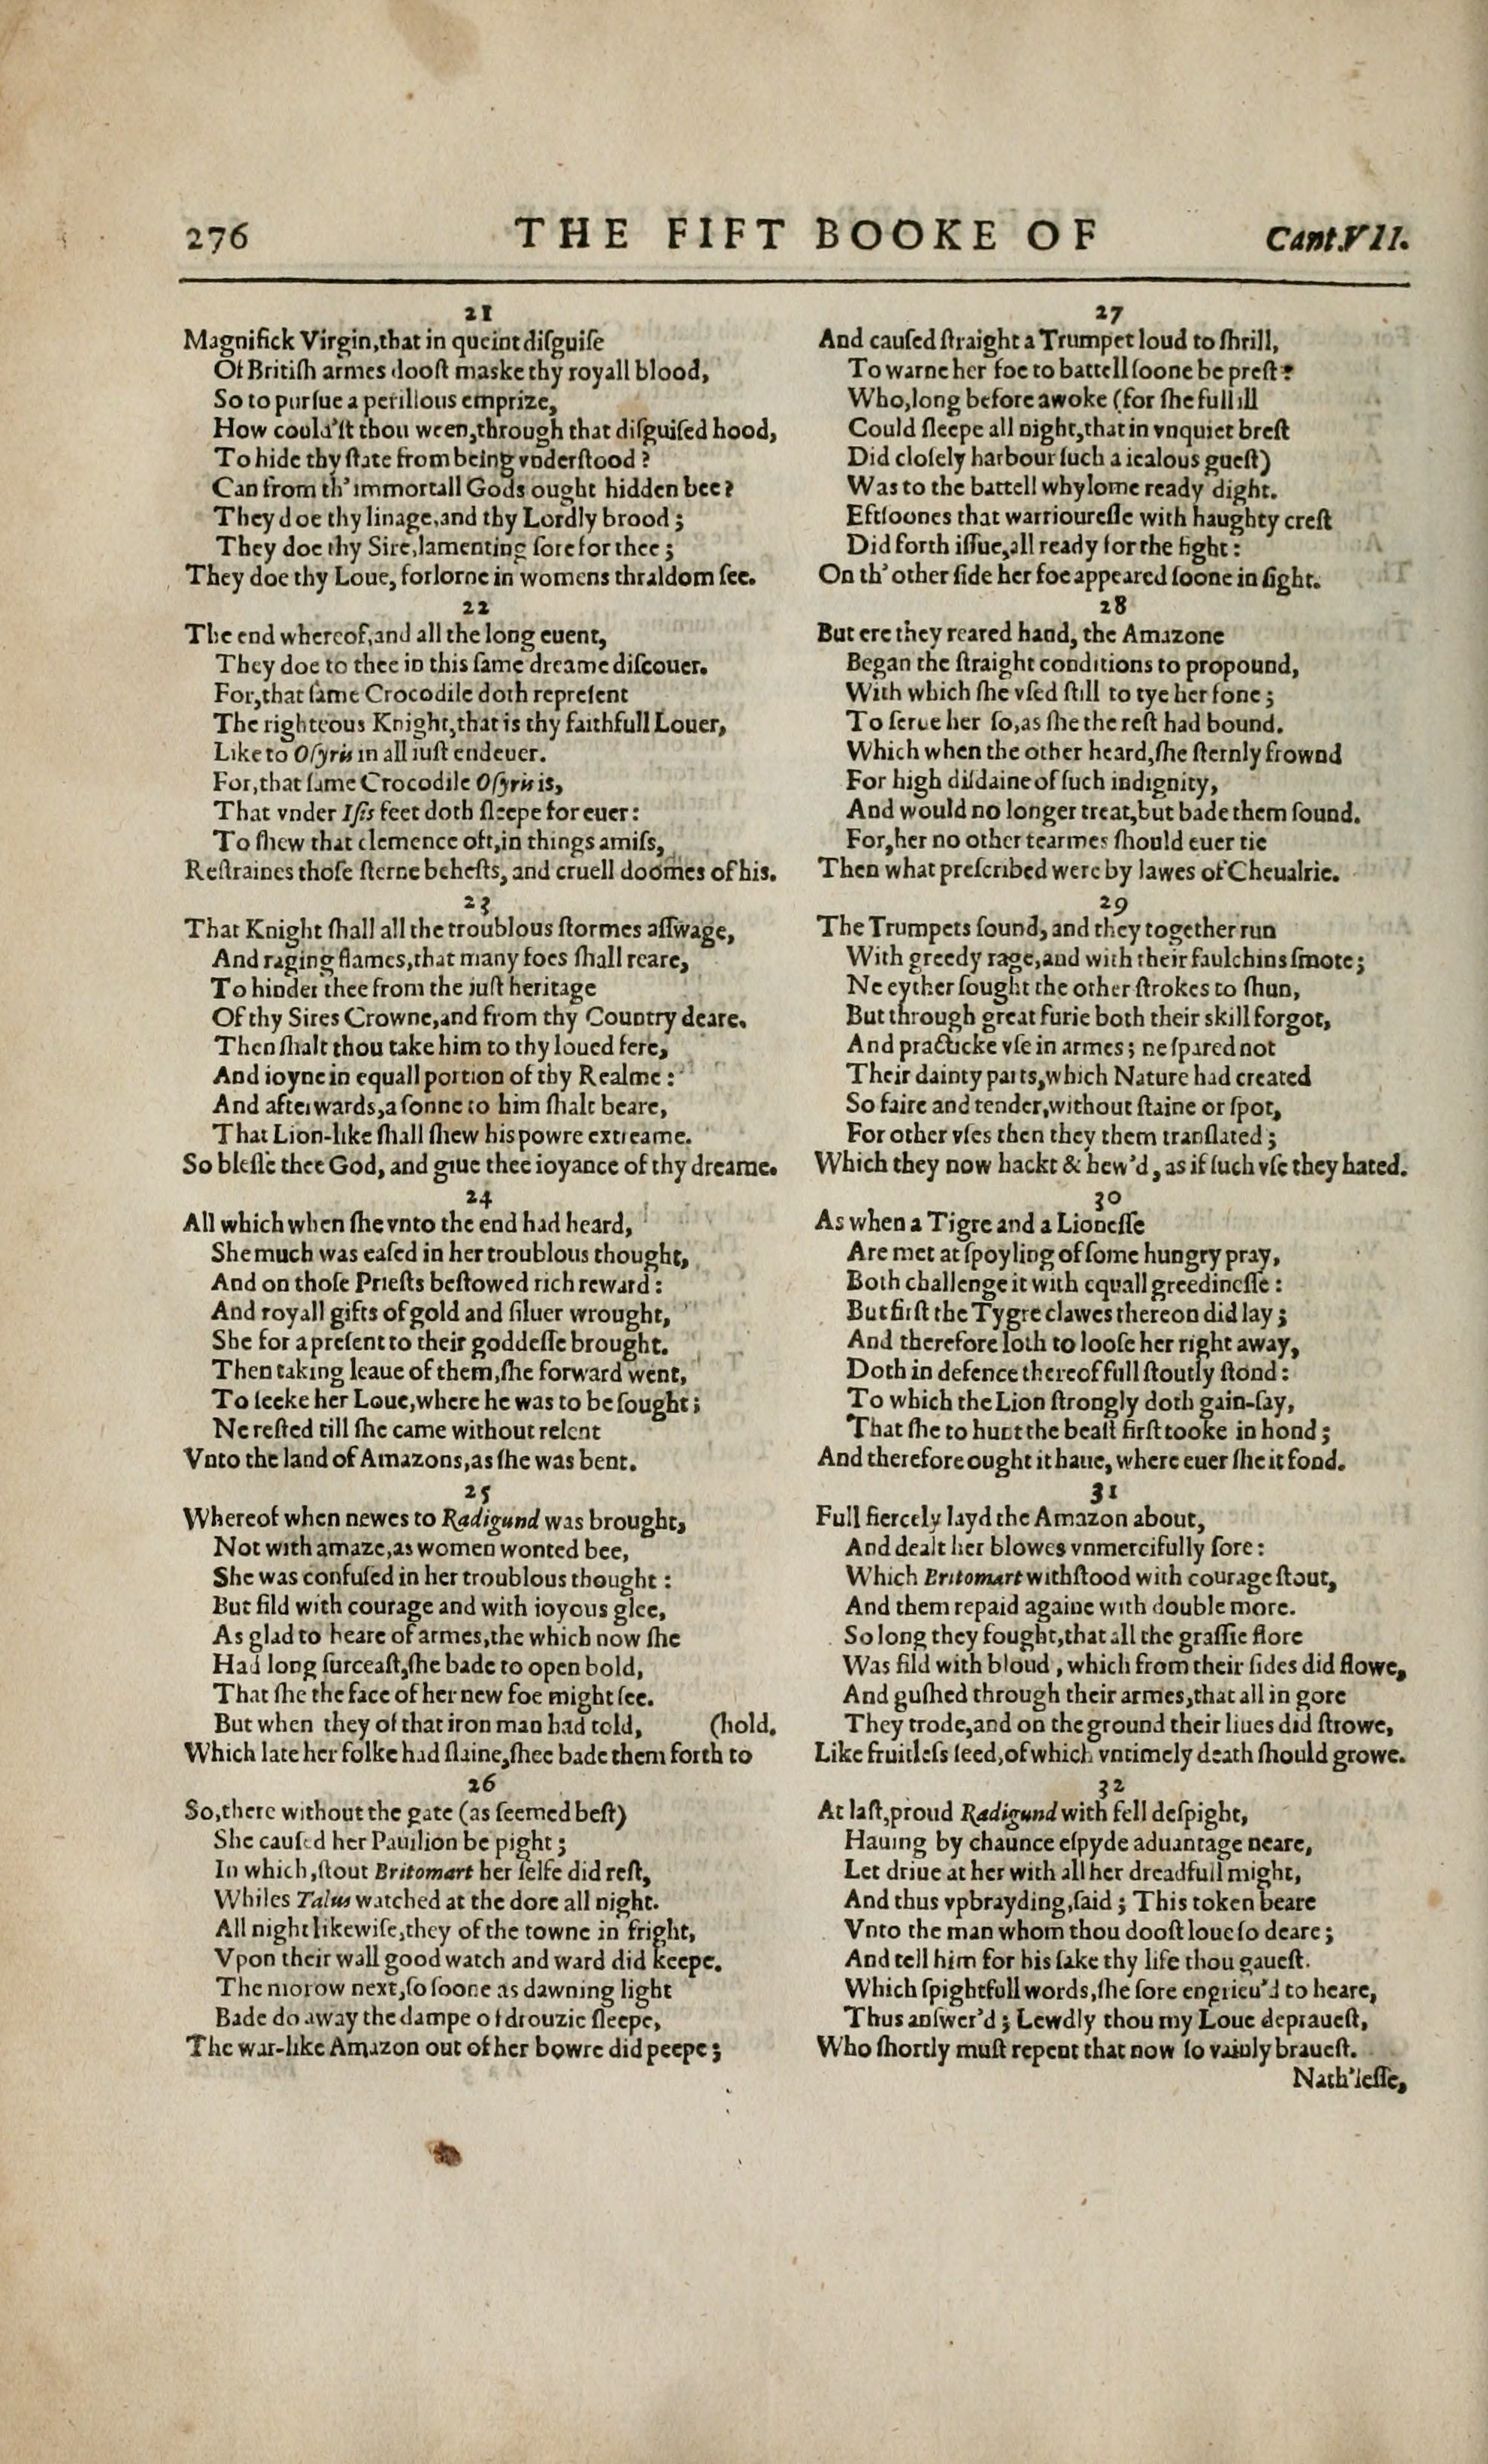 276 THE FIFT BOOKE OF Cant.VII.
21
Magnifick Virgin,that in queint diſguiſe
Of Britiſh armes dooſt maske thy royall blood,
So to purſue a perillous emprize,
How could'ſt thou ween,through that diſguiſed hood,
To hide thy ſtate from being vnderſtood ?
Can from th' immortall Gods ought hidden bee?
They doe thy linage,and thy Lordly brood ;
They doe thy Sire,lamenting ſore for thee ;
They doe thy Loue, forlorne in womens thraldom ſee.
22
The end whereof,and all the long euent,
They doe to thee in this ſame dreame diſcouer.
For,that ſame Crocodile doth repreſent
The righteous Knight,that is thy faithfull Louer,
Like to Oſyris in all iuſt endeuer.
For,that ſame Crocodile Oſyris is,
That vnder Iſis feet doth ſleepe for euer:
To ſhew that clemence oft,in things amiſs,
Reſtraines thoſe ſterne beheſts, and cruell doomes of his.
23
That Knight ſhall all the troublous ſtormes aſſwage,
And raging flames,that many foes ſhall reare,
To hinder thee from the iuſt heritage
Of thy Sires Crowne,and from thy Country deare.
Then ſhalt thou take him to thy loued fere,
And ioyne in equall portion of thy Realme :
And afterwards,a ſonne to him ſhalt beare,
That Lion-like ſhall ſhew his powre extreame.
So bleſſe thee God, and giue thee ioyance of thy dreame.
24
All which when ſhe vnto the end had heard,
She much was eaſed in her troublous thought,
And on thoſe Prieſts beſtowed rich reward :
And royall gifts of gold and ſiluer wrought,
She for a preſent to their goddeſſe brought.
Then taking leaue of them,ſhe forward went,
To ſeeke her Loue,where he was to be ſought ;
Ne reſted till ſhe came without relent
Vnto the land of Amazons,as ſhe was bent.
25
Whereof when newes to Radigund was brought,
Not with amaze,as women wonted bee,
She was confuſed in her troublous thought :
But fild with courage and with ioyous glee,
As glad to heare of armes,the which now ſhe
Had long ſurceaſt,ſhe bade to open bold,
That ſhe the face of her new foe might ſee.
But when they of that iron man had told, (hold.
Which late her folke had ſlaine,ſhee bade them forth to
26
So,there without the gate (as ſeemed beſt)
She cauſed her Pauilion be pight ;
In which,ſtout Britomart her ſelfe did reſt,
Whiles Talus watched at the dore all night.
All night likewiſe,they of the towne in fright,
Vpon their wall good watch and ward did keepe.
The morow next,ſo ſoone as dawning light
Bade do away the dampe of drouzie ſleepe,
The war-like Amazon out of her bowre did peepe ;
27
And cauſed ſtraight a Trumpet loud to ſhrill,
To warne her foe to battell ſoone be preſt:
Who,long before awoke (for ſhe full ill
Could ſleepe all night,that in vnquiet breſt
Did cloſely harbour ſuch a iealous gueſt)
Was to the battell whylome ready dight.
Eftſoones that warrioureſſe with haughty creſt
Did forth iſſue,all ready for the fight :
On th' other ſide her foe appeared ſoone in ſight.
28
But ere they reared hand, the Amazone
Began the ſtraight conditions to propound,
With which ſhe vſed ſtill to tye her fone ;
To ſerue her ſo,as ſhe the reſt had bound.
Which when the other heard,ſhe ſternly frownd
For high diſdaine of ſuch indignity,
And would no longer treat,but bade them ſound.
For,her no other tearmes ſhould euer tie
Then what preſcribed were by lawes of Cheualrie.
29
The Trumpets ſound, and they together run
With greedy rage,and with their faulchins ſmote ;
Ne eyther ſought the other ſtrokes to ſhun,
But through great furie both their skill forgot,
And practicke vſe in armes ; ne ſpared not
Their dainty parts,which Nature had created
So faire and tender,without ſtaine or ſpot,
For other vſes then they them tranſlated ;
Which they now hackt & hew'd, as if ſuch vſe they hated.
30
As when a Tigre and a Lioneſſe
Are met at ſpoyling of ſome hungry pray,
Both challenge it with equall greedineſſe :
But firſt the Tygre clawes thereon did lay ;
And therefore loth to looſe her right away,
Doth in defence thereof full ſtoutly ſtond :
To which the Lion ſtrongly doth gain-ſay,
That ſhe to hunt the beaſt firſt tooke in hond ;
And therefore ought it haue, where euer ſhe it fond.
31
Full fiercely layd the Amazon about,
And dealt her blowes vnmercifully ſore :
Which Britomart withſtood with courage ſtout,
And them repaid againe with double more.
So long they fought,that all the graſſie flore
Was fild with bloud , which from their ſides did flowe,
And guſhed through their armes,that all in gore
They trode,and on the ground their liues did ſtrowe,
Like fruitleſs ſeed,of which vntimely death ſhould growe.
32
At laſt,proud Radigund with fell deſpight,
Hauing by chaunce eſpyde aduantage neare,
Let driue at her with all her dreadfull might,
And thus vpbrayding,ſaid ; This token beare
Vnto the man whom thou dooſt loue ſo deare ;
And tell him for his ſake thy life thou gaueſt.
Which ſpightfull words,ſhe ſore engrieu'd to heare,
Thus anſwer'd ; Lewdly thou my Loue depraueſt,
Who ſhortly muſt repent that now ſo vainly braueſt.
Nath'leſſe,